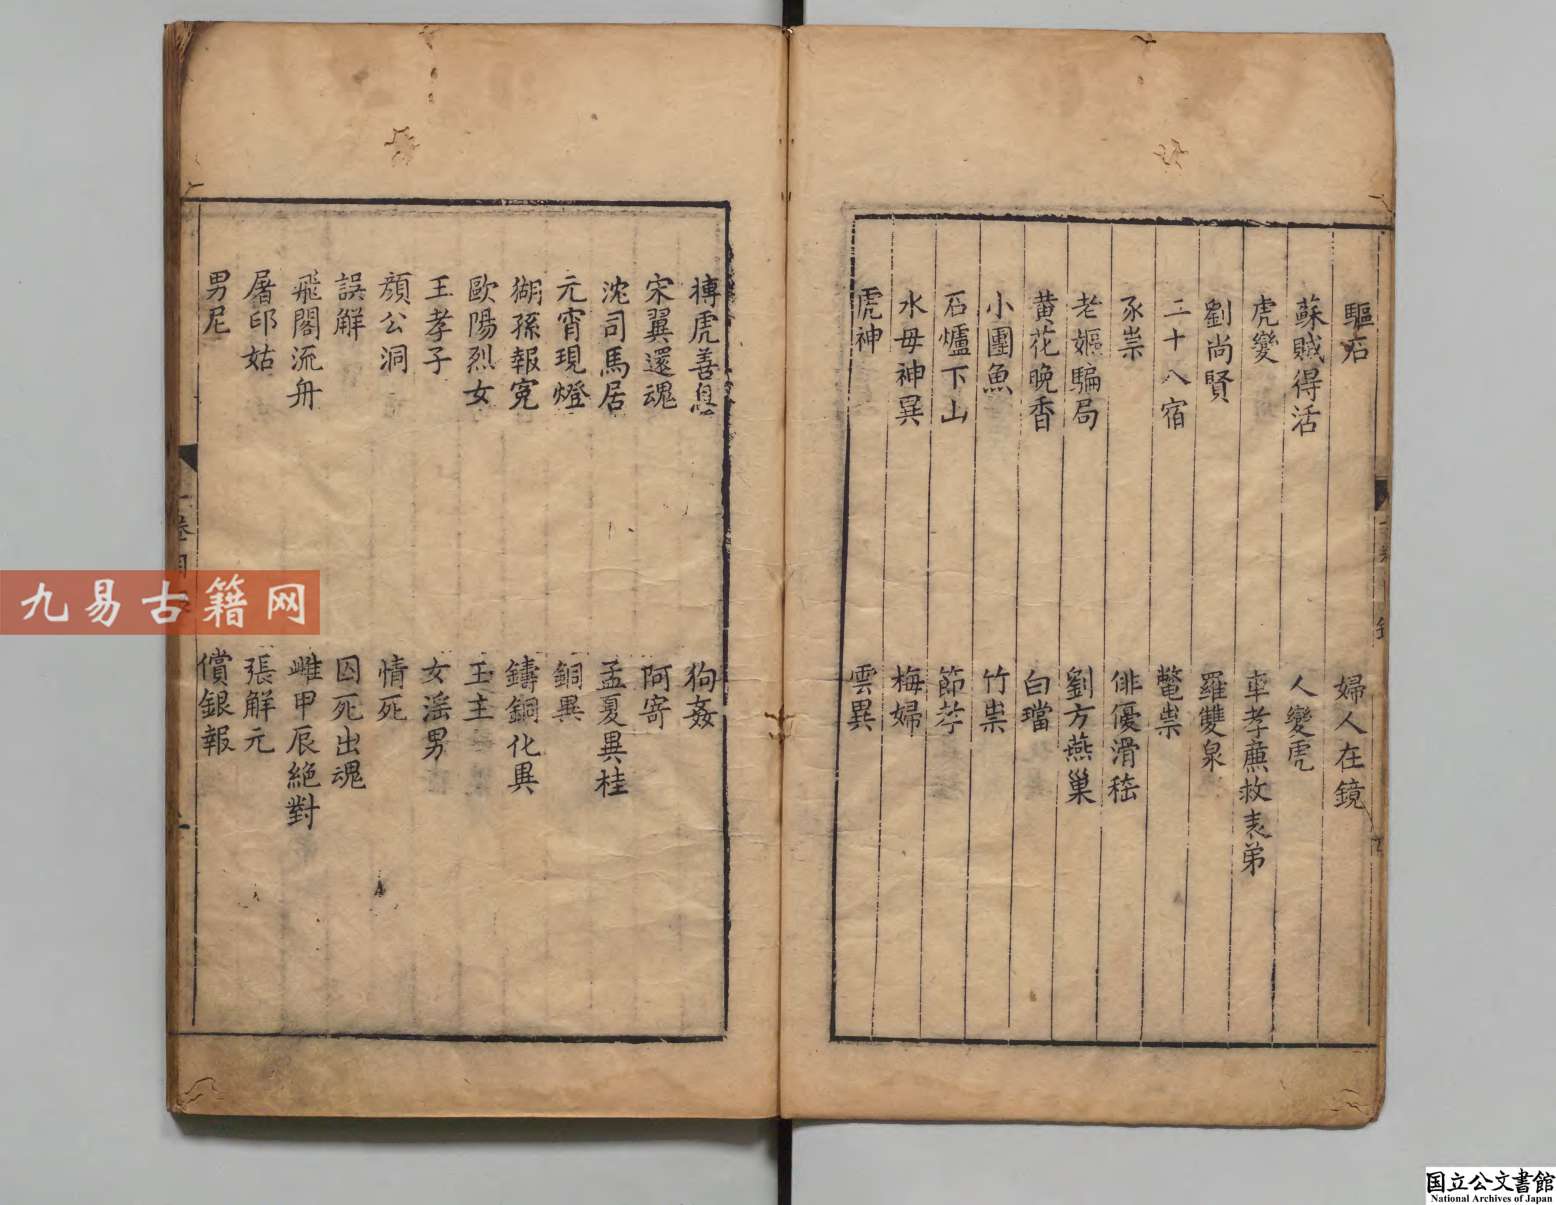 驅石　婦人在鏡
蘇賊得活　人變虎
虎變　車孝廉救表弟
劉尚賢　羅雙泉
二十八宿　鼈祟
豕祟　俳優滑稽
老嫗騙局　劉方燕巢
黃花晚香　白璫
小團魚　竹祟
石爐下山　節孝
水母神異　梅婦
虎神　雲異
搏虎善息　狗姦
宋翼還魂　阿寄
沈司馬居　孟夏異桂
元宵現燈　銅異
猢孫報冤　鑄銅化異
歐陽烈女　玉主
王孝子　女淫男
顏公洞　情死
誤解　囚死出魂
飛閣流舟　雌甲辰絕對
屠印姑　張解元
男尼　償銀報
卷目
九易古籍网
国立公文書館
National Archives of Japan